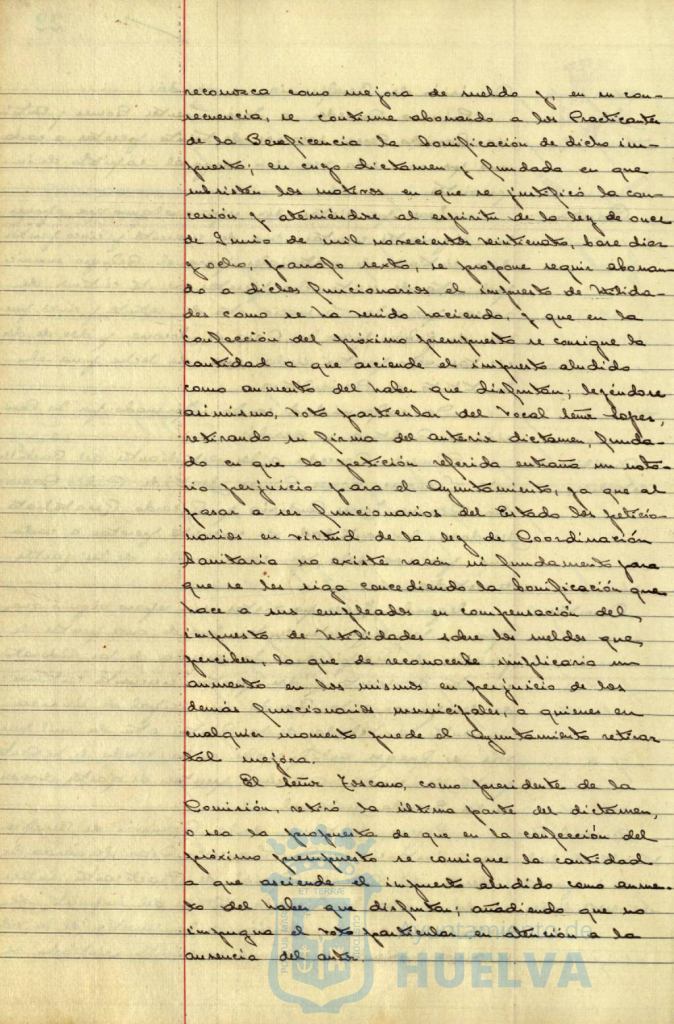 reconozca como mejora de sueldo y, en su con-
secuencia, se continue abonando a los Practicantes
de la Beneficencia la bonificación de dicho im-
puesto; en cuyo dictamen y fundada en que
subsisten los motivos en que se justificó la con-
cesión y ateniéndose al espíritu de la ley de once
de Junio de mil novecientos veinticuatro, base diez
y ocho, párrafo sexto, se propone seguir abonan-
do a dichos funcionarios el impuesto de Utilida-
des como se ha venido haciendo, y que en la
confección del próximo presupuesto se consigne la
cantidad a que asciende el impuesto aludido
como aumento del haber que disfrutan; leyéndose
asimismo, voto particular del Vocal Señor López,
retirando su firma del anterior dictamen, funda-
do en que la petición referida entraña un noto-
rio perjuicio para el Ayuntamiento, ya que al
pasar a ser funcionarios del Estado los peticio-
narios en virtud de la ley de Coordinación
Sanitaria no existe razón ni fundamento para
que se les siga concediendo la bonificación que
hace a sus empleados en compensación del
impuesto de Utilidades sobre los sueldos que
perciben, lo que de reconocerle implicaria un
aumento en los mismos en perjuicio de los
demás funcionarios municipales, a quienes en
cualquier momento puede el Ayuntamiento retirar
tal mejora.
El Señor Toscano, como presidente de la
Comisión, retiró la última parte del dictamen,
o sea la propuesta de que en la confección del
próximo presupuesto se consigne la cantidad
a que asciende el impuesto aludido como aumen-
to del haber que disfrutan; añadiendo que no
impugna el voto particular en atención a la
ausencia del autor.
Ayuntamiento de
HUELVA